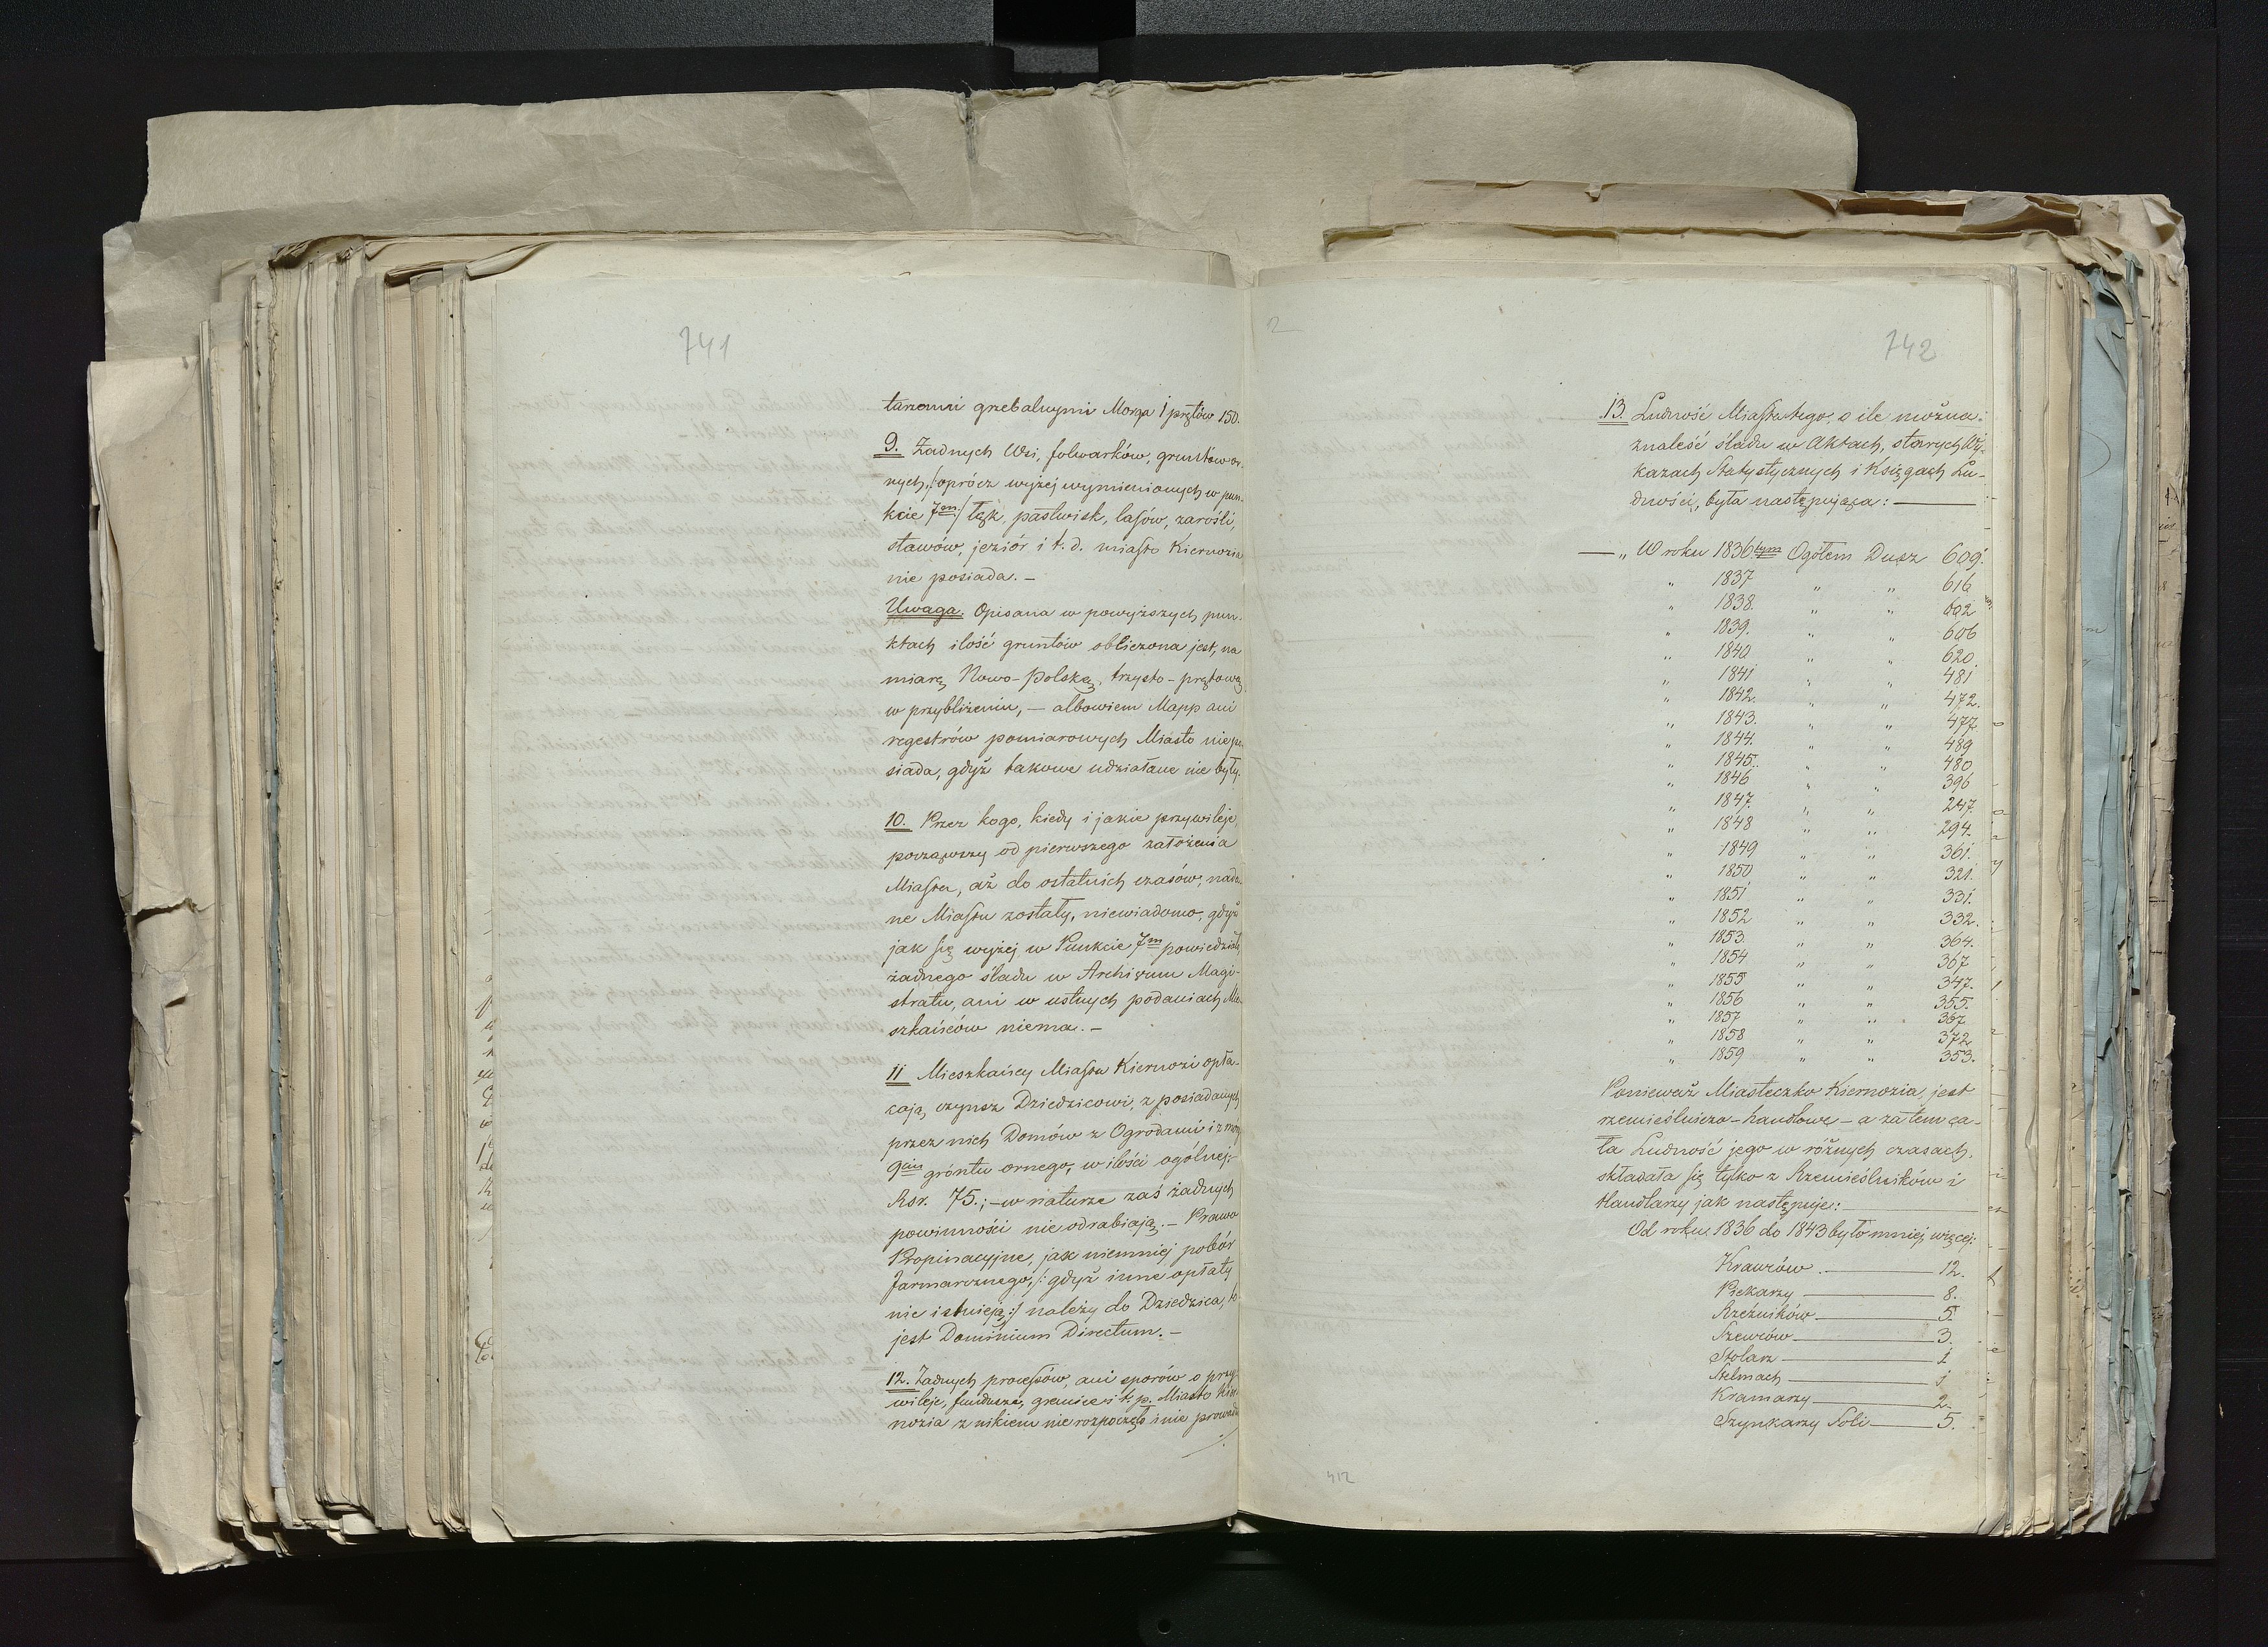 741
tarzami grzebalnymi Morga 1 prętów 150.
9. Żadnych Wsi, folwarków, gruntów or-
nych, /oprócz wyżej wymienionych w pun-
kcie 7m/ łąk, pastwisk, lasów, zarośli,
stawów, jeziór i t. d. miasto Kiernozia
nie posiada. –
Uwaga. Opisana w powyższych pun-
ktach ilość gruntów obliczona jest, na
miarę Nowo-Polską, trzysto-prętową
w przybliżeniu, – albowiem Mapp ani
regestrów pomiarowych Miasto nie po-
siada, gdyż takowe udziałane nie były.
10. Przez kogo, kiedy i jakie przywileje,
począwszy od pierwszego założenia
Miasta, aż do ostatnich czasów, nada-
ne Miastu zostały, niewiadomo, gdyż
jak się wyżej w Punkcie 7m powiedziało
żadnego śladu w Archiwum Magi-
stratu, ani w ustnych podaniach Mie-
szkańców niema. –
11 Mieszkańcy Miasta Kiernozi opła-
cają czynsz Dziedzicowi, z posiadanych
przez nich Domów z Ogrodami i z mórg
9ciu gróntu ornego, w ilości ogólnej:
Rsr. 75.; – w naturze zaś żadnych
powinności nie odrabiają. – Prawo
Propinacyjne, jak niemniej pobór
Jarmarcznego, /: gdyż inne opłaty
nie istnieją :/ należy do Dziedzica, to
jest Dominium Directum. –
12. Żadnych processów, ani sporów o przy-
wileje, fundusze, granice i t. p. Miasto Kier-
nozia z nikiem nie rozpoczęło i nie prowadzi
2
742
13. Ludność Miasta tego, o ile można
znaleść śladu w Aktach, starych Wy-
kazach Statystycznych i Księgach Lu-
dności, była następująca: —
— „ W roku 1836tym Ogółem Dusz 609.
„ 1837 „ „ 616
„ 1838. „ „ 602
„ 1839. „ „ 606
„ 1840 „ „ 620.
„ 1841 „ „ 481
„ 1842. „ „ 472.
„ 1843. „ „ 477
„ 1844. „ „ 489
„ 1845. „ „ 480
„ 1846 „ „ 396
„ 1847. „ „ 247.
„ 1848 „ „ 294.
„ 1849 „ „ 361.
„ 1850 „ „ 321.
„ 1851 „ „ 331.
„ 1852 „ „ 332.
„ 1853. „ „ 364.
„ 1854 „ „ 367
„ 1855 „ „ 347.
„ 1856 „ „ 355.
„ 1857 „ „ 367
„ 1858 „ „ 372
„ 1859 „ „ 353.
Ponieważ Miasteczko Kiernozia, jest
rzemieślniczo-handlowe – a zatem ca-
ła Ludność jego w różnych czasach,
składała się tylko z Rzemieślników i
Handlarzy jak następuje: —
Od roku 1836 do 1843 było mniej więcej:
Krawców — 12.
Piekarzy — 8.
Rzeźników — 5.
Szewców — 3.
Stolarz — 1
Stelmach — 1
Kramarzy — 2.
Szynkarzy Soli — 5.
412